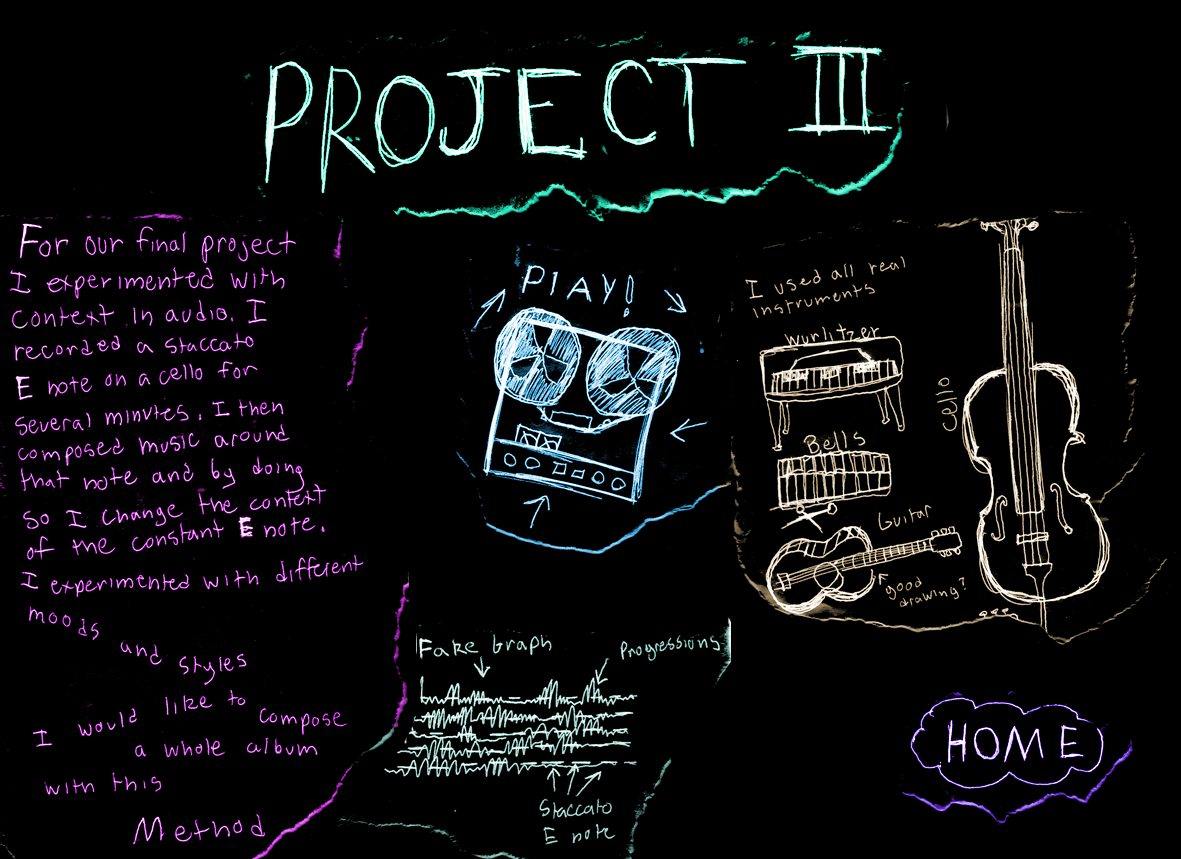 PROJECT III
For our final project
I experimented with
context in audio. I
recorded a staccato
E note on a cello for
several minutes. I then
composed music around
that note and by doing
so I change the context
of the constant E note.
I experimented with different
moods
and styles
I would like to compose
a whole album
with this
Method
PLAY!
I used all real
instruments
wurlitzer
cello
Bells
Guitar
good
drawing?
Fake Graph
Progressions
Staccato
E note
HOME